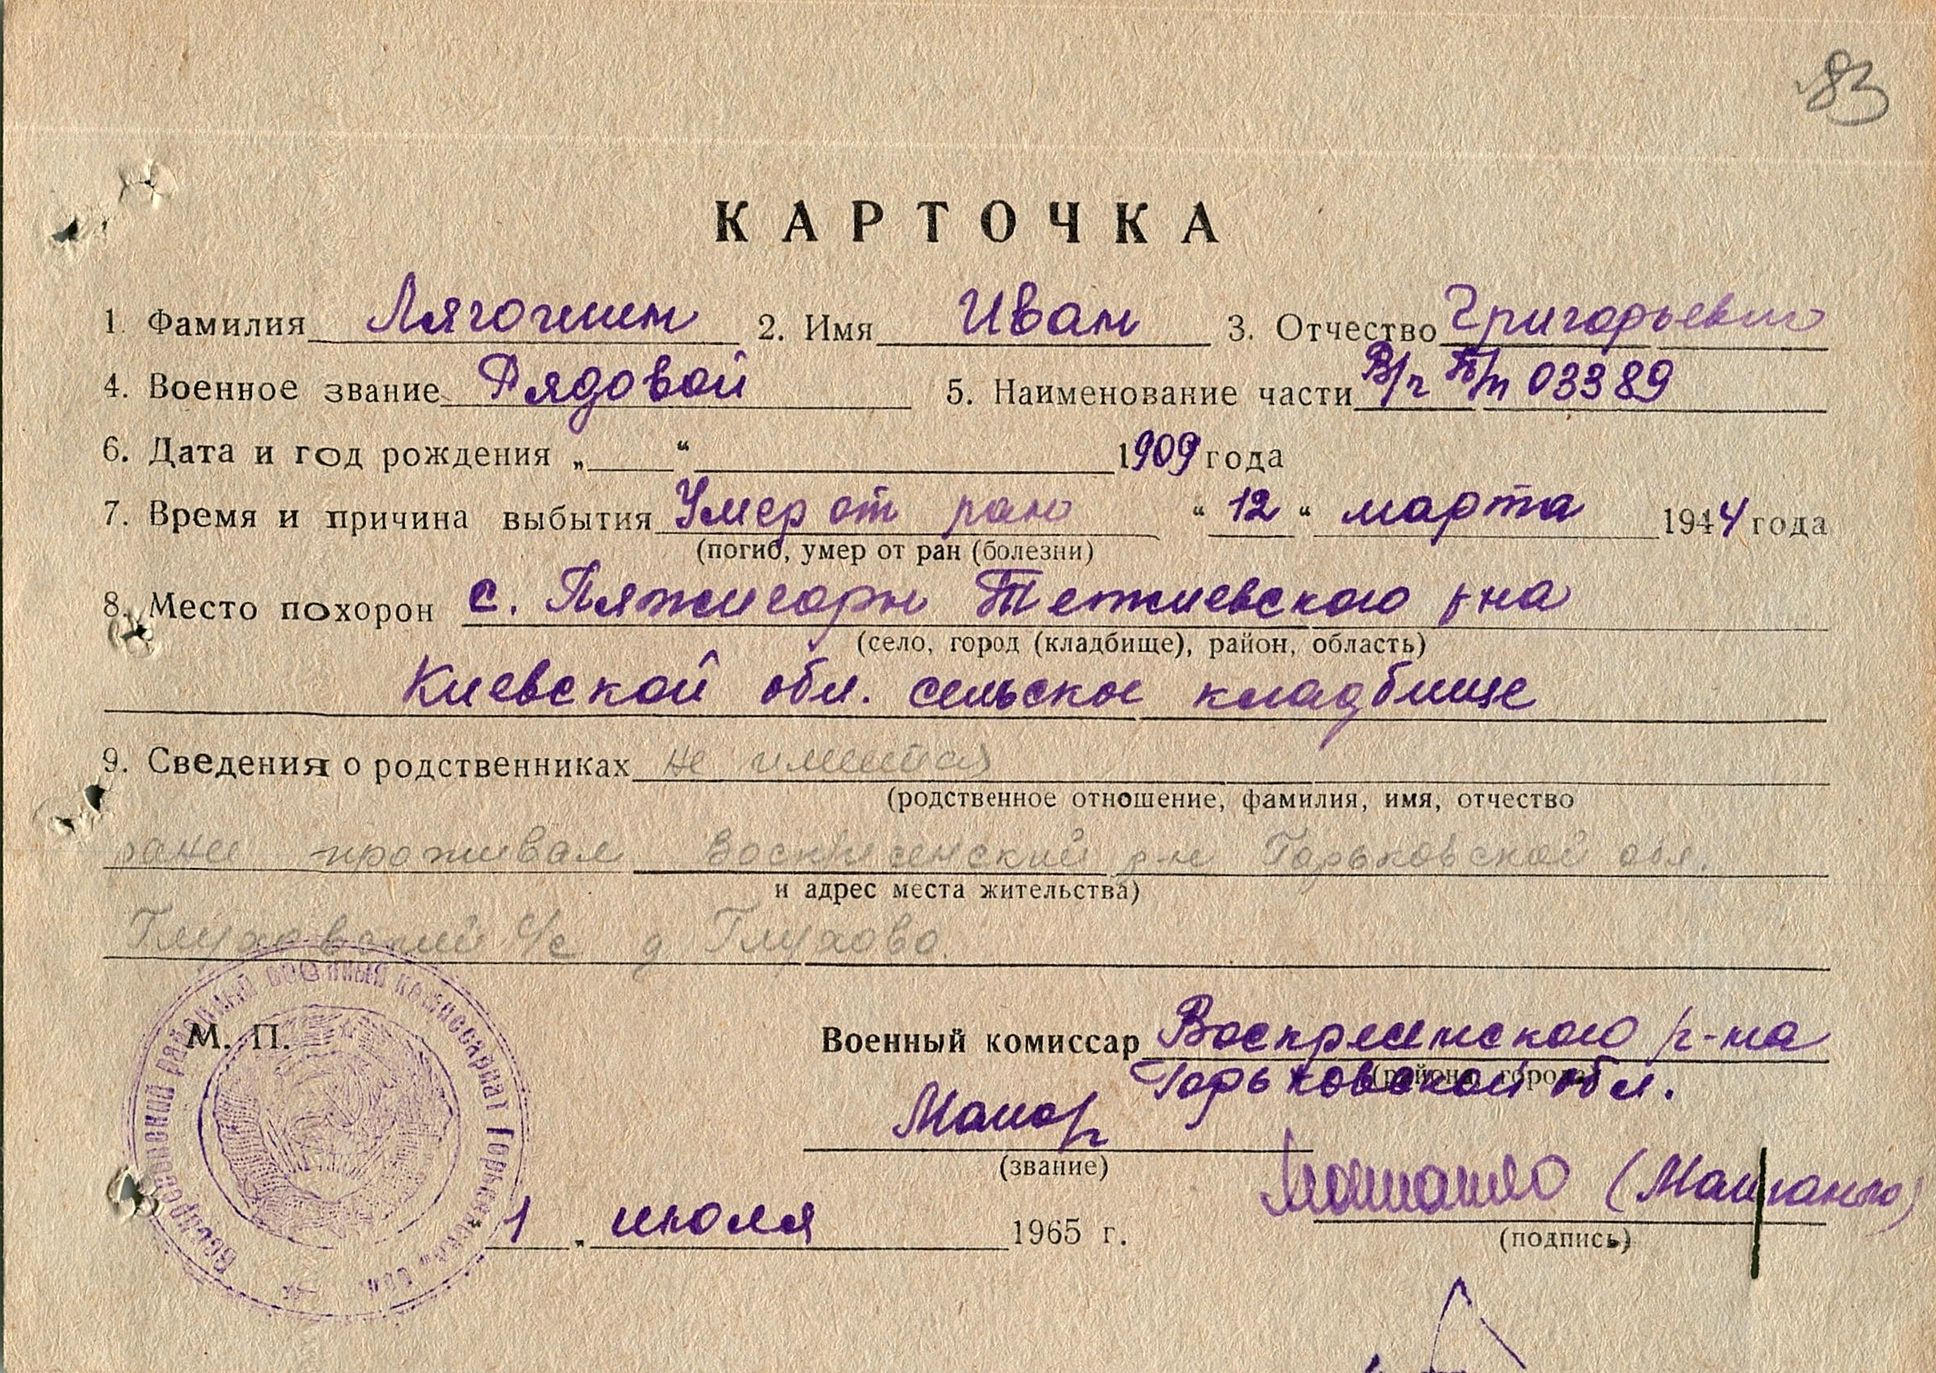 83
КАРТОЧКА
1. Фамилия Лягочкин 2. Имя Иван 3. Отчество Григорьевич
4. Военное звание Рядовой 5. Наименование части В/ч П/п 03389
6. Дата и год рождения „ “ 1909 года
7. Время и причина выбытия Умер от ран “ 12 “ марта 1944 года
(погиб, умер от ран (болезни)
8. Место похорон с. Пяжигоры Тетиевского р-на
(село, город (кладбище), район, область)
Киевской обл. сельское кладбище
9. Сведения о родственниках не имеются
(родственное отношение, фамилия, имя, отчество
ранее проживал Воскресенский р-н Горьковской обл.
и адрес места жительства)
Глуховский с/с д Глухово.
М. П.
Военный комиссар Воскресенского р-на
(района, города)
Горьковской обл.
Майор
(звание)
1 „ июля 1965 г.
(подпись)
Воскресенский районный военный комиссариат Горьковской обл.